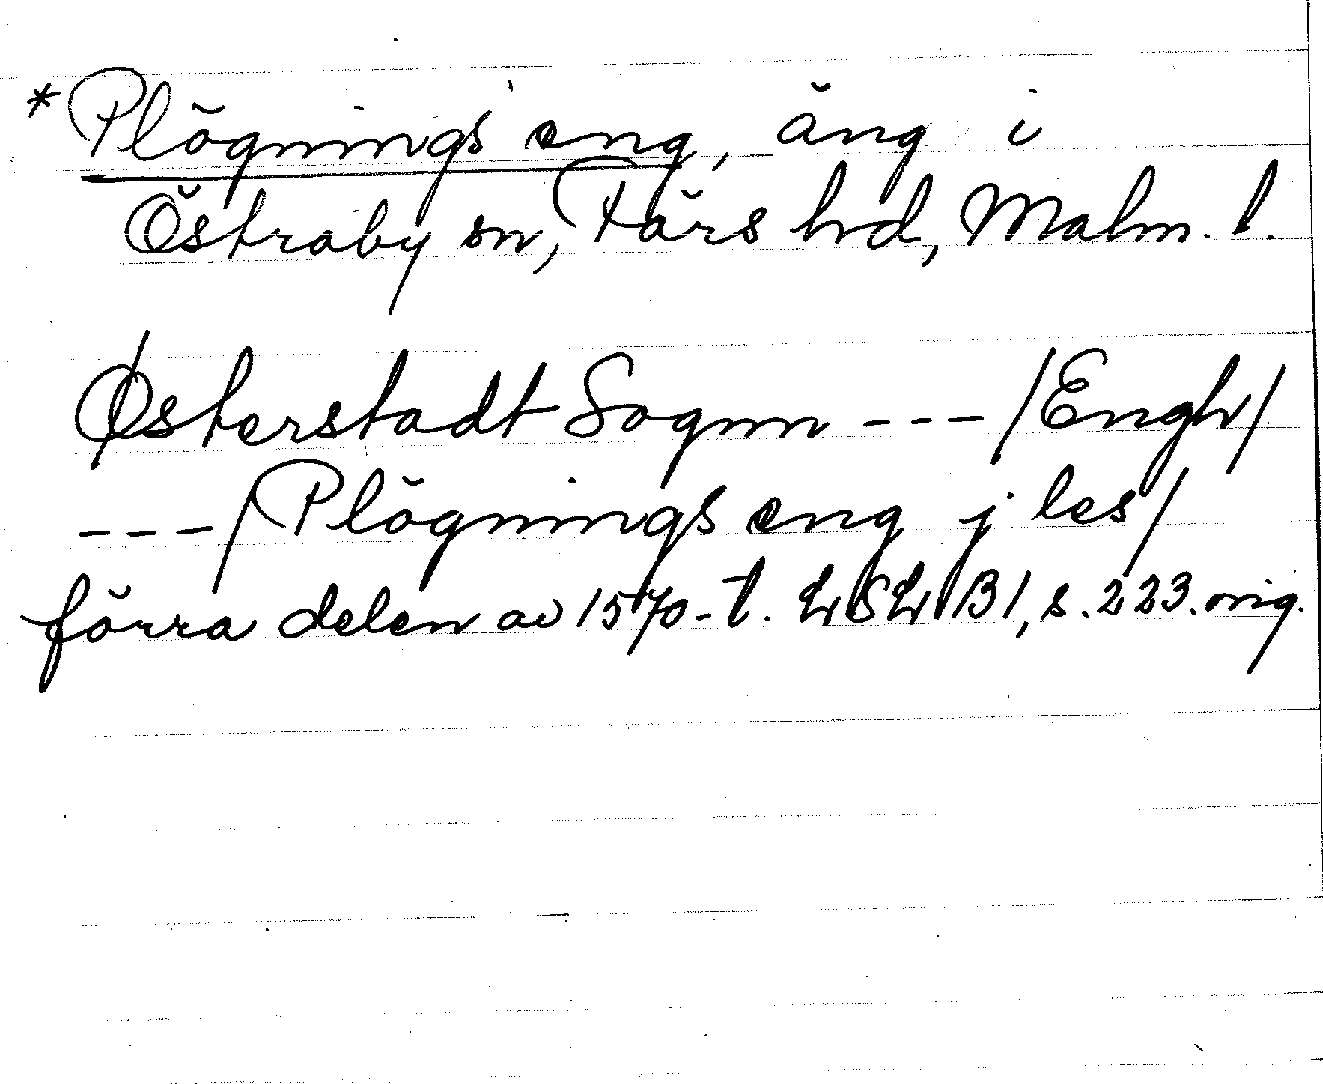 *Plögnings eng, äng i
Östraby sn, Färs hd, Malm. l.
Østerstadt Sognn --- /Engh/
---/Plögnings eng j les/
förra delen av 1570-t. LSLB1, s. 223. orig.